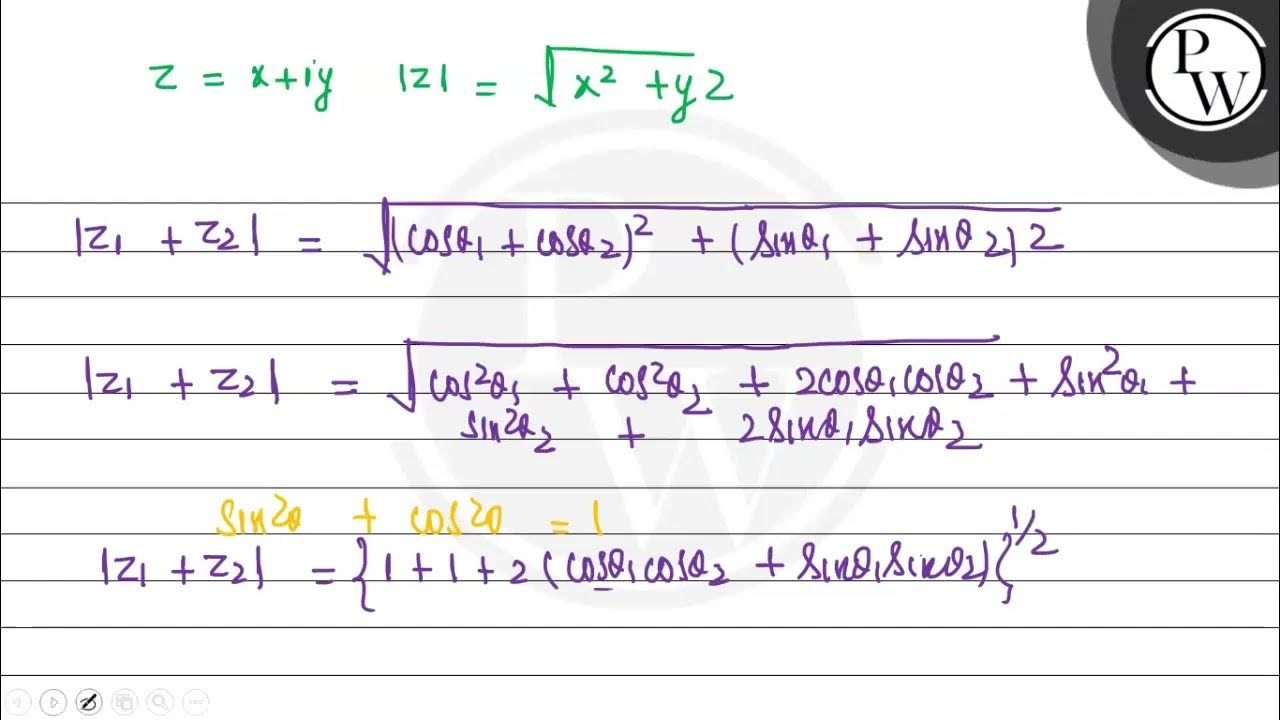 z = x+iy |z| = √x² + y2
|z₁ + z₂| = √(cosθ₁ + cosθ₂)² + (sinθ₁ + sinθ₂)2
|z₁ + z₂| = √cos²θ₁ + cos²θ₂ + 2cosθ₁cosθ₂ + sin²θ₁ +
sin²θ₂ + 2sinθ₁sinθ₂
sin²θ + cos²θ = 1
|z₁ + z₂| = {1 + 1 + 2(cosθ₁cosθ₂ + sinθ₁sinθ₂)}^1/2
PW
PW